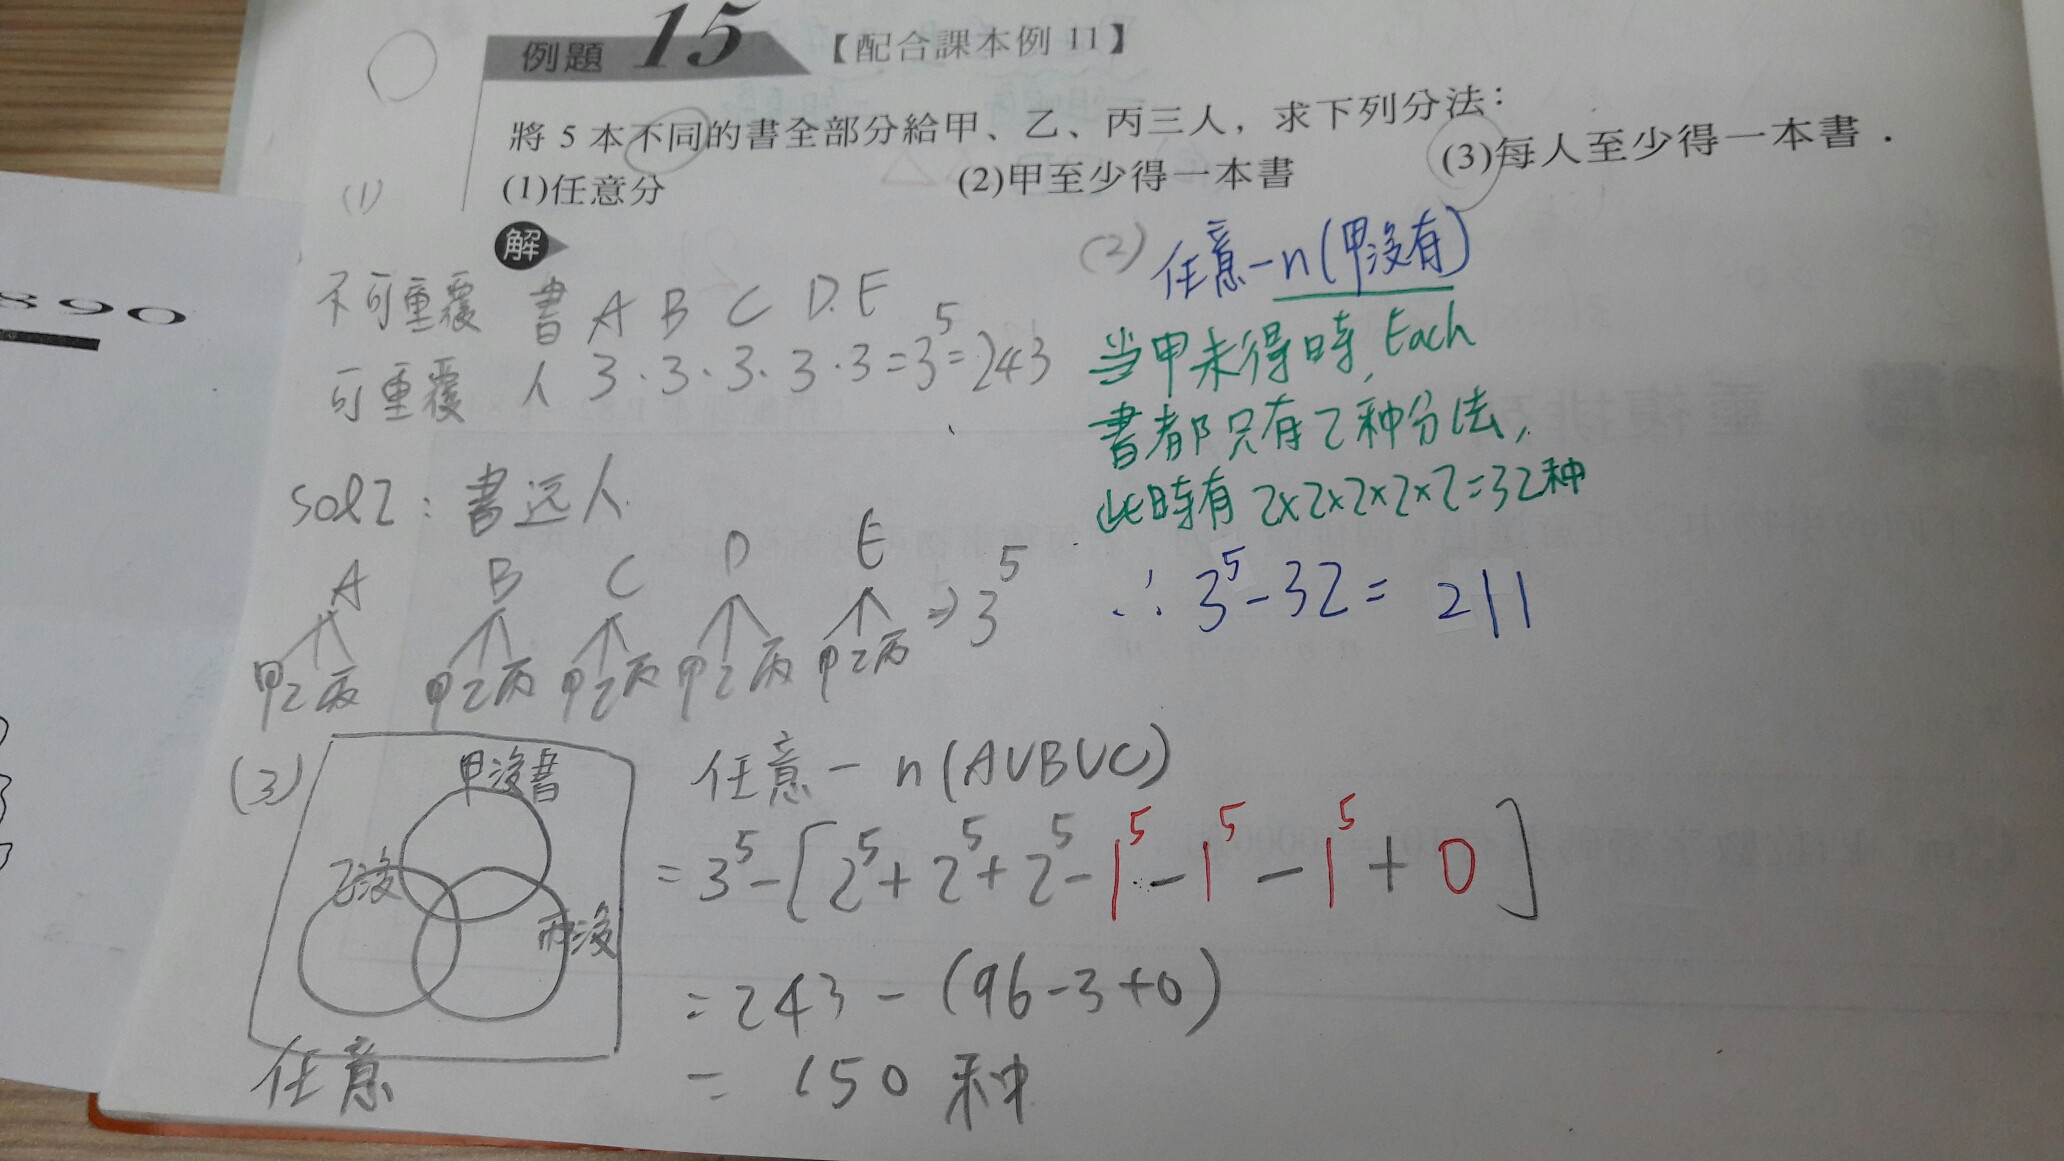 890
例題 15 【配合課本例 11】
將 5 本不同的書全部分給甲、乙、丙三人，求下列分法：
(1)任意分 (2)甲至少得一本書 (3)每人至少得一本書．
解
(1)
不可重覆 書 A B C D. E
可重覆 人 3 · 3 · 3 · 3 · 3 = 3⁵ = 243
sol2 : 書选人
A B C D E
甲乙丙 甲乙丙 甲乙丙 甲乙丙 甲乙丙 ⇒ 3⁵
(2) 任意 - n(甲沒有)
当甲未得時, Each
書都只有2种分法,
此時有 2×2×2×2×2=32种
∴ 3⁵ - 32 = 211
(3)
甲沒書
乙沒
丙沒
任意
任意 - n(A∪B∪C)
= 3⁵ - [2⁵ + 2⁵ + 2⁵ - 1⁵ - 1⁵ - 1⁵ + 0]
= 243 - (96 - 3 + 0)
= 150 种